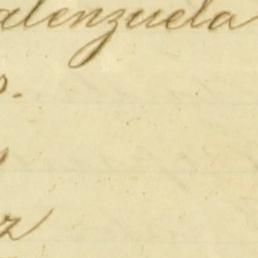 alenzuela
o.
z